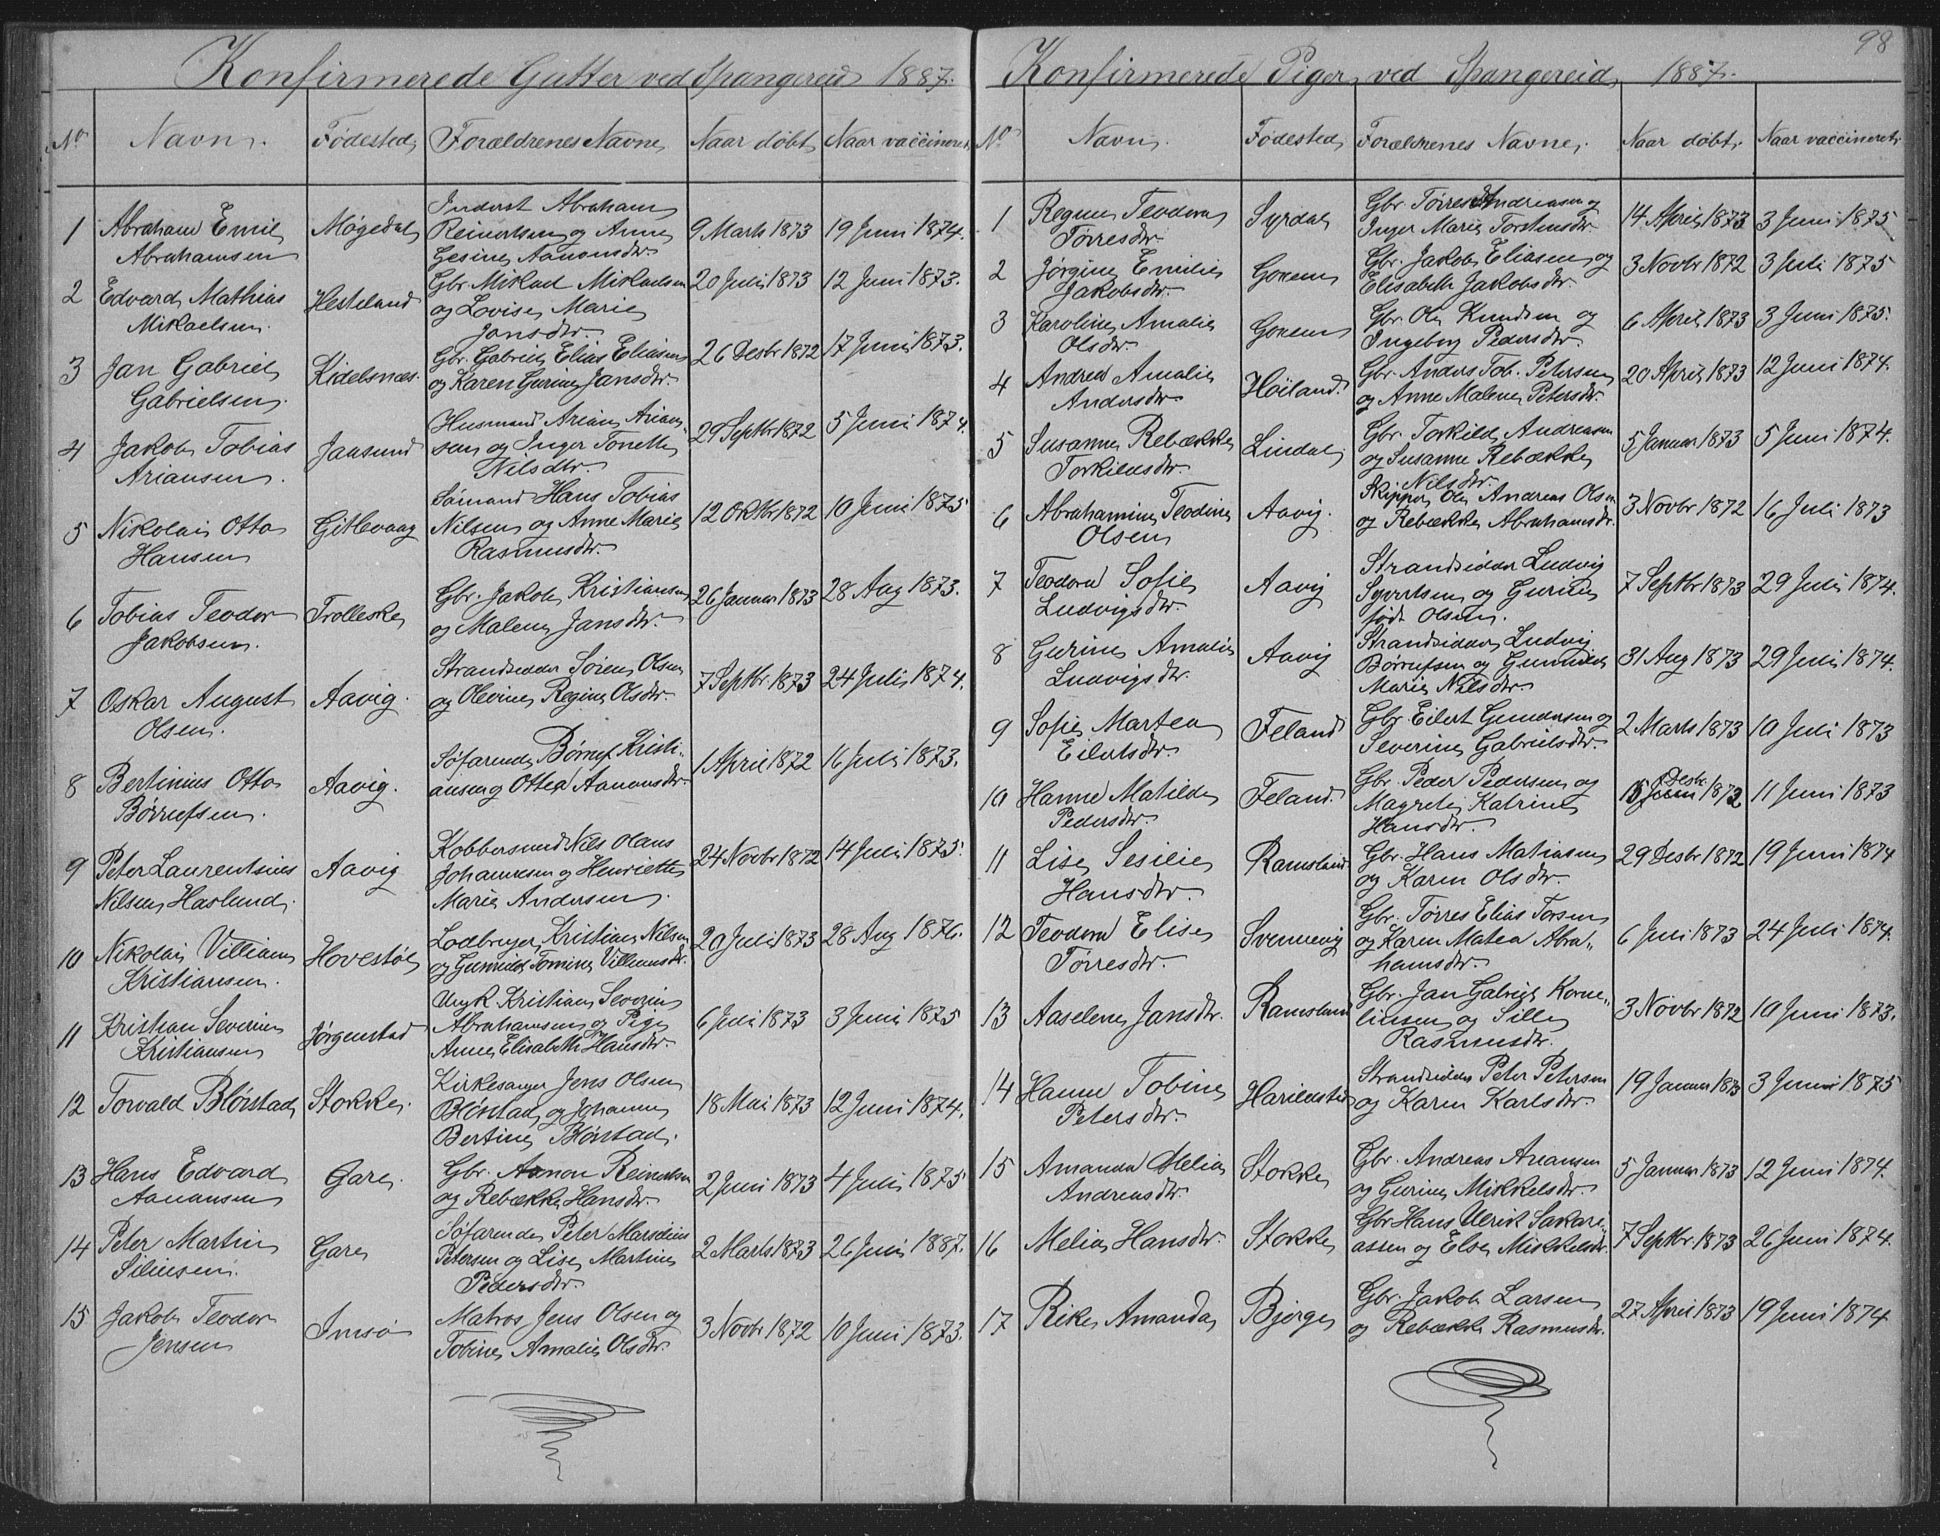 98
Konfirmerede Gutter ved Spangereid 1887.
No Navn. Fødested Forældrenes Navne Naar døbt Naar vaccineret
1 Abraham Emil Abrahamsen Møgedal Inderst Abraham
Reinertsen og Anne 9 Marts 1873 19 Juni 1874.
Gesine Aanonsdtr.
2 Edvard Mathias Hesteland Gbr. Mikael Mikaelsen 20 Juli 1873 12 Juni 1873.
Mikaelsen. og Lovise Marie
Jansdtr.
3 Jan Gabriel Kidelsnæs. Gbr. Gabriel Elias Eliasen 26 Desbr 1872 17 Juni 1873.
Gabrielsen. og Karen Gurine Jansdtr.
4 Jakob Tobias Jaasund Husmand Arian Arian- 29 Septbr 1872 5 Juni 1874.
Ariansen. sen og Inger Tonette
Nilsdtr.
5 Nikolai Otto Gitlevaag Sømand Hans Tobias 12 Oktbr 1872 10 Juni 1875
Hansen Nilsen og Anne Marie
Rasmusdtr.
6 Tobias Teodor Trolleske Gbr. Jakob Kristiansen 26 Januar 1873 28 Aug 1873.
Jakobsen. og Malene Jansdtr.
7 Oskar August Aavig. Strandsidder Sören Olsen 7 Septbr. 1873 24 Juli 1874.
Olsen. og Olevine Regine Olsdtr.
8 Bertinius Otto Aavig. Søfarende Børruf Kristi- 1 April 1872 16 Juli 1873.
Børrufsen. ansen og Ottea Aanonsdtr.
9 Peter Laurentsius Aavig Kobbersmed Nils Olaus 24 Novbr 1872 14 Juli 1875.
Nilsen Haslund. Johannesen og Henriette
Marie Andersen.
10 Nikolai Villiam Hovestøl Lodbruger Kristian Nilsen 20 Juli 1873 28 Aug 1876.
Kristiansen. og Gunnild Tomine Villiamsdtr.
11 Kristian Severin Jørgenstad Ungk. Kristian Severin 6 Juli 1873 3 Juni 1875
Kristiansen Abrahamsen og Pige
Anne Elisabeth Hansdtr.
12 Torvald Blörstad Stokke. Kirkesanger Jens Olsen 18 Mai 1873 12 Juni 1874.
Blörstad og Johanne
Bertine Blörstad.
13 Hans Edvard Gare. Gbr. Aanon Reinertsen 2 Juni 1873 4 Juli 1875
Aanansen og Rebække Hansdtr.
14 Peter Martin Gare Søfarende Peter Marselius 2 Marts 1873 26 Juni 1887.
Siliusen. Petersen og Lise Martine
Pedersdtr.
15 Jakob Teodor Imsø Matros Jens Olsen og 3 Novbr 1872 10 Juni 1873.
Jensen Tobine Amalie Olsdtr.
Konfirmerede Piger ved Spangereid 1887.
No Navn. Fødested Forældrenes Navne. Naar døbt. Naar vaccineret.
1 Regine Teodora Syrdal Gbr. Tørres Andreasen og 14 April 1873 3 Juni 1875
Tørresdtr. Inger Marie Torstensdtr.
2 Jørgine Emilie Goksem Gbr. Jakob Eliasen og 3 Novbr 1872 3 Juli 1875
Jakobsdtr. Elisabeth Jakobsdtr.
3 Karoline Amalie Goksem Gbr. Ole Knudsen og 6 April 1873 3 Juni 1875.
Olsdtr. Ingeborg Pedersdtr.
4 Andrea Amalie Høiland. Gbr. Anders Tob. Petersen 20 April 1873 12 Juni 1874.
Andersdtr og Anne Malene Petersdtr.
5 Susanne Rebække Lindal Gbr. Torkild Andreasen 5 Januar 1873 5 Juni 1874.
Torkildsdtr. og Susanne Rebække
Nilsdtr.
6 Abrahamine Teodine Aavig. Skipper Ole Andreas Olsen 3 Novbr 1872 16 Juli 1873
Olsen og Rebække Abrahamsdtr.
7 Teodora Sofie Aavig Strandsidder Ludvig 7 Septbr 1873 29 Juli 1874.
Ludvigsdtr. Syvertsen og Gurine
født Olsen.
8 Gurine Amalie Aavig Strandsidder Ludvig 31 Aug 1873 29 Juli 1874.
Ludvigsdtr. Børrufsen og Gunnild
Marie Nilsdtr.
9 Sofie Martea Feland Gbr. Eilert Gundersen og 2 Marts 1873 10 Juli 1873
Eilertsdtr. Severine Gabrielsdtr.
10 Hanne Matilde Feland. Gbr. Peder Pedersen og 15 Desbr. 1872 11 Juni 1873
Pedersdtr. Magrete Katrine
Hansdtr.
11 Lise Sesilie Ramsland Gbr. Hans Matiasen 29 Desbr 1872 19 Juni 1874
Hansdtr og Karen Olsdtr.
12 Teodora Elise Svennevig Gbr. Tørres Elias Torsen 6 Juli 1873 24 Juli 1874.
Tørresdtr. og Karen Matea Abra-
hamsdtr.
13 Aaselene Jansdtr. Ramsland Gbr. Jan Gabriel Korne- 3 Novbr 1872 10 Juni 1873.
liusen og Sille
Rasmusdtr.
14 Hanne Tobine Harildstad Strandsidder Peter Petersen 19 Januar 1873 3 Juni 1875
Petersdtr. og Karen Karlsdtr.
15 Amanda Melia Stokke Gbr. Andreas Ariansen 5 Januar 1873 12 Juni 1874.
Andreasdtr. og Gurine Mikkelsdtr.
16 Melia Hansdtr. Stokke Gbr Hans Ulrik Sakari- 7 Septbr. 1873 26 Juni 1874.
assen og Else Mikkelsdtr.
17 Rike Amanda Bjerge Gbr. Jakob Larsen 27 April 1873 19 Juni 1874
og Rebække Rasmusdtr.